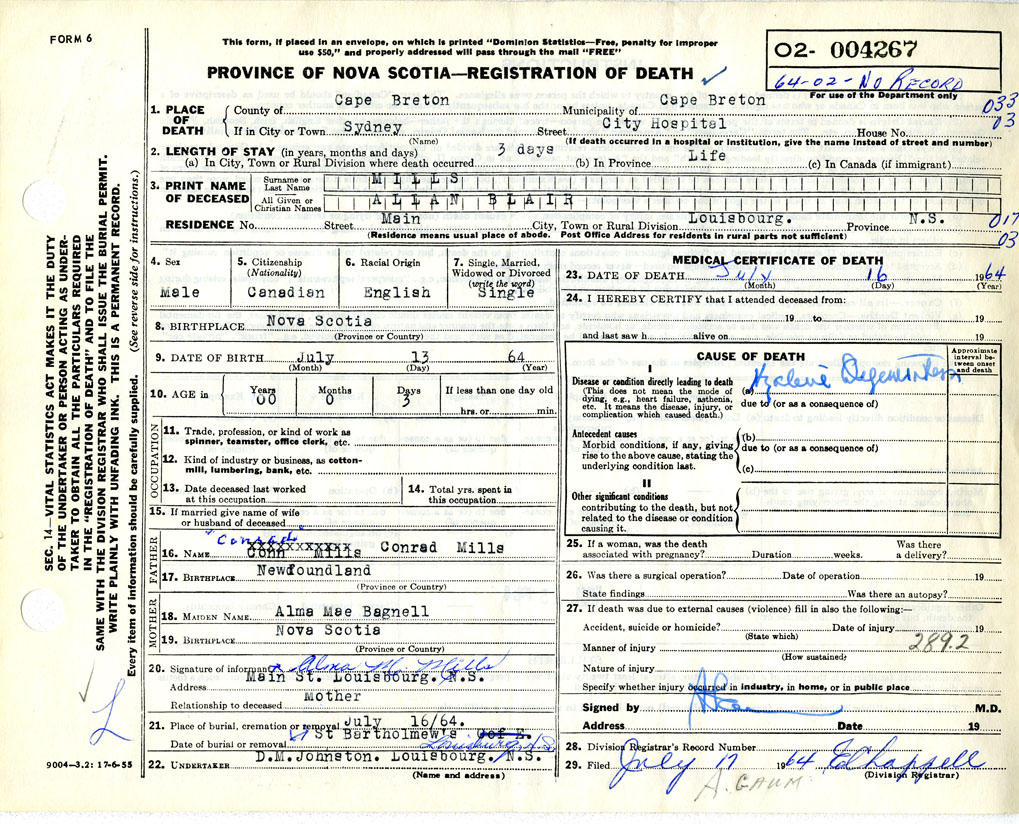 FORM 6
This form, if placed in an envelope, on which is printed "Dominion Statistics—Free, penalty for improper
use $50," and properly addressed will pass through the mail "FREE"
O2- 004267
64-02- No RECORD
For use of the Department only
PROVINCE OF NOVA SCOTIA—REGISTRATION OF DEATH
033
03
1. PLACE OF DEATH
County of Cape Breton Municipality of Cape Breton
If in City or Town Sydney Street City Hospital House No.
(Name) (If death occurred in a hospital or institution, give the name instead of street and number)
2. LENGTH OF STAY (in years, months and days)
(a) In City, Town or Rural Division where death occurred 3 days (b) In Province Life (c) In Canada (if immigrant)
3. PRINT NAME OF DECEASED
Surname or Last Name MILLS
All Given or Christian Names ALLAN BLAIR
RESIDENCE No. Street Main City, Town or Rural Division Louisbourg. Province N.S.
(Residence means usual place of abode. Post Office Address for residents in rural parts not sufficient)
017
03
4. Sex
Male
5. Citizenship
(Nationality)
Canadian
6. Racial Origin
English
7. Single, Married,
Widowed or Divorced
(write the word)
Single
8. BIRTHPLACE Nova Scotia
(Province or Country)
9. DATE OF BIRTH July 13 64
(Month) (Day) (Year)
10. AGE in Years Months Days If less than one day old
00 0 3 hrs. or min.
OCCUPATION
11. Trade, profession, or kind of work as
spinner, teamster, office clerk, etc.
12. Kind of industry or business, as cotton-
mill, lumbering, bank, etc.
13. Date deceased last worked
at this occupation
14. Total yrs. spent in
this occupation
15. If married give name of wife
or husband of deceased
FATHER
"Conrad"
16. NAME Conn Mills Conrad Mills
17. BIRTHPLACE Newfoundland
(Province or Country)
MOTHER
18. MAIDEN NAME Alma Mae Bagnell
19. BIRTHPLACE Nova Scotia
(Province or Country)
20. Signature of informant Alma M. Mills
Address Main St. Louisbourg. N.S.
Relationship to deceased Mother
21. Place of burial, cremation or removal July 16/64.
Date of burial or removal St Bartholmew's Cof E.
Louisburg N.S.
22. UNDERTAKER D.M.Johnston. Louisbourg. N.S.
(Name and address)
MEDICAL CERTIFICATE OF DEATH
23. DATE OF DEATH July 16 1964
(Month) (Day) (Year)
24. I HEREBY CERTIFY that I attended deceased from:
19 to 19
and last saw h alive on 19
CAUSE OF DEATH
Approximate
interval be-
tween onset
and death
I
Disease or condition directly leading to death
(This does not mean the mode of
dying, e.g., heart failure, asthenia,
etc. It means the disease, injury, or
complication which caused death.)
(a)
due to (or as a consequence of)
Antecedent causes
Morbid conditions, if any, giving
rise to the above cause, stating the
underlying condition last.
(b)
due to (or as a consequence of)
(c)
II
Other significant conditions
contributing to the death, but not
related to the disease or condition
causing it.
25. If a woman, was the death Was there
associated with pregnancy? Duration weeks. a delivery?
26. Was there a surgical operation? Date of operation 19
State findings Was there an autopsy?
27. If death was due to external causes (violence) fill in also the following:—
Accident, suicide or homicide? Date of injury 19
(State which)
289.2
Manner of injury
(How sustained)
Nature of injury
Specify whether injury occurred in industry, in home, or in public place
Signed by M.D.
Address Date 19
28. Division Registrar's Record Number
29. Filed July 17 1964 Ed Chappell
(Division Registrar)
A. GAUM
SEC. 14—VITAL STATISTICS ACT MAKES IT THE DUTY
OF THE UNDERTAKER OR PERSON ACTING AS UNDER-
TAKER TO OBTAIN ALL THE PARTICULARS REQUIRED
IN THE "REGISTRATION OF DEATH" AND TO FILE THE
SAME WITH THE DIVISION REGISTRAR WHO SHALL ISSUE THE BURIAL PERMIT.
WRITE PLAINLY WITH UNFADING INK. THIS IS A PERMANENT RECORD.
Every item of information should be carefully supplied. (See reverse side for instructions.)
L
9004—3.2: 17-6-55